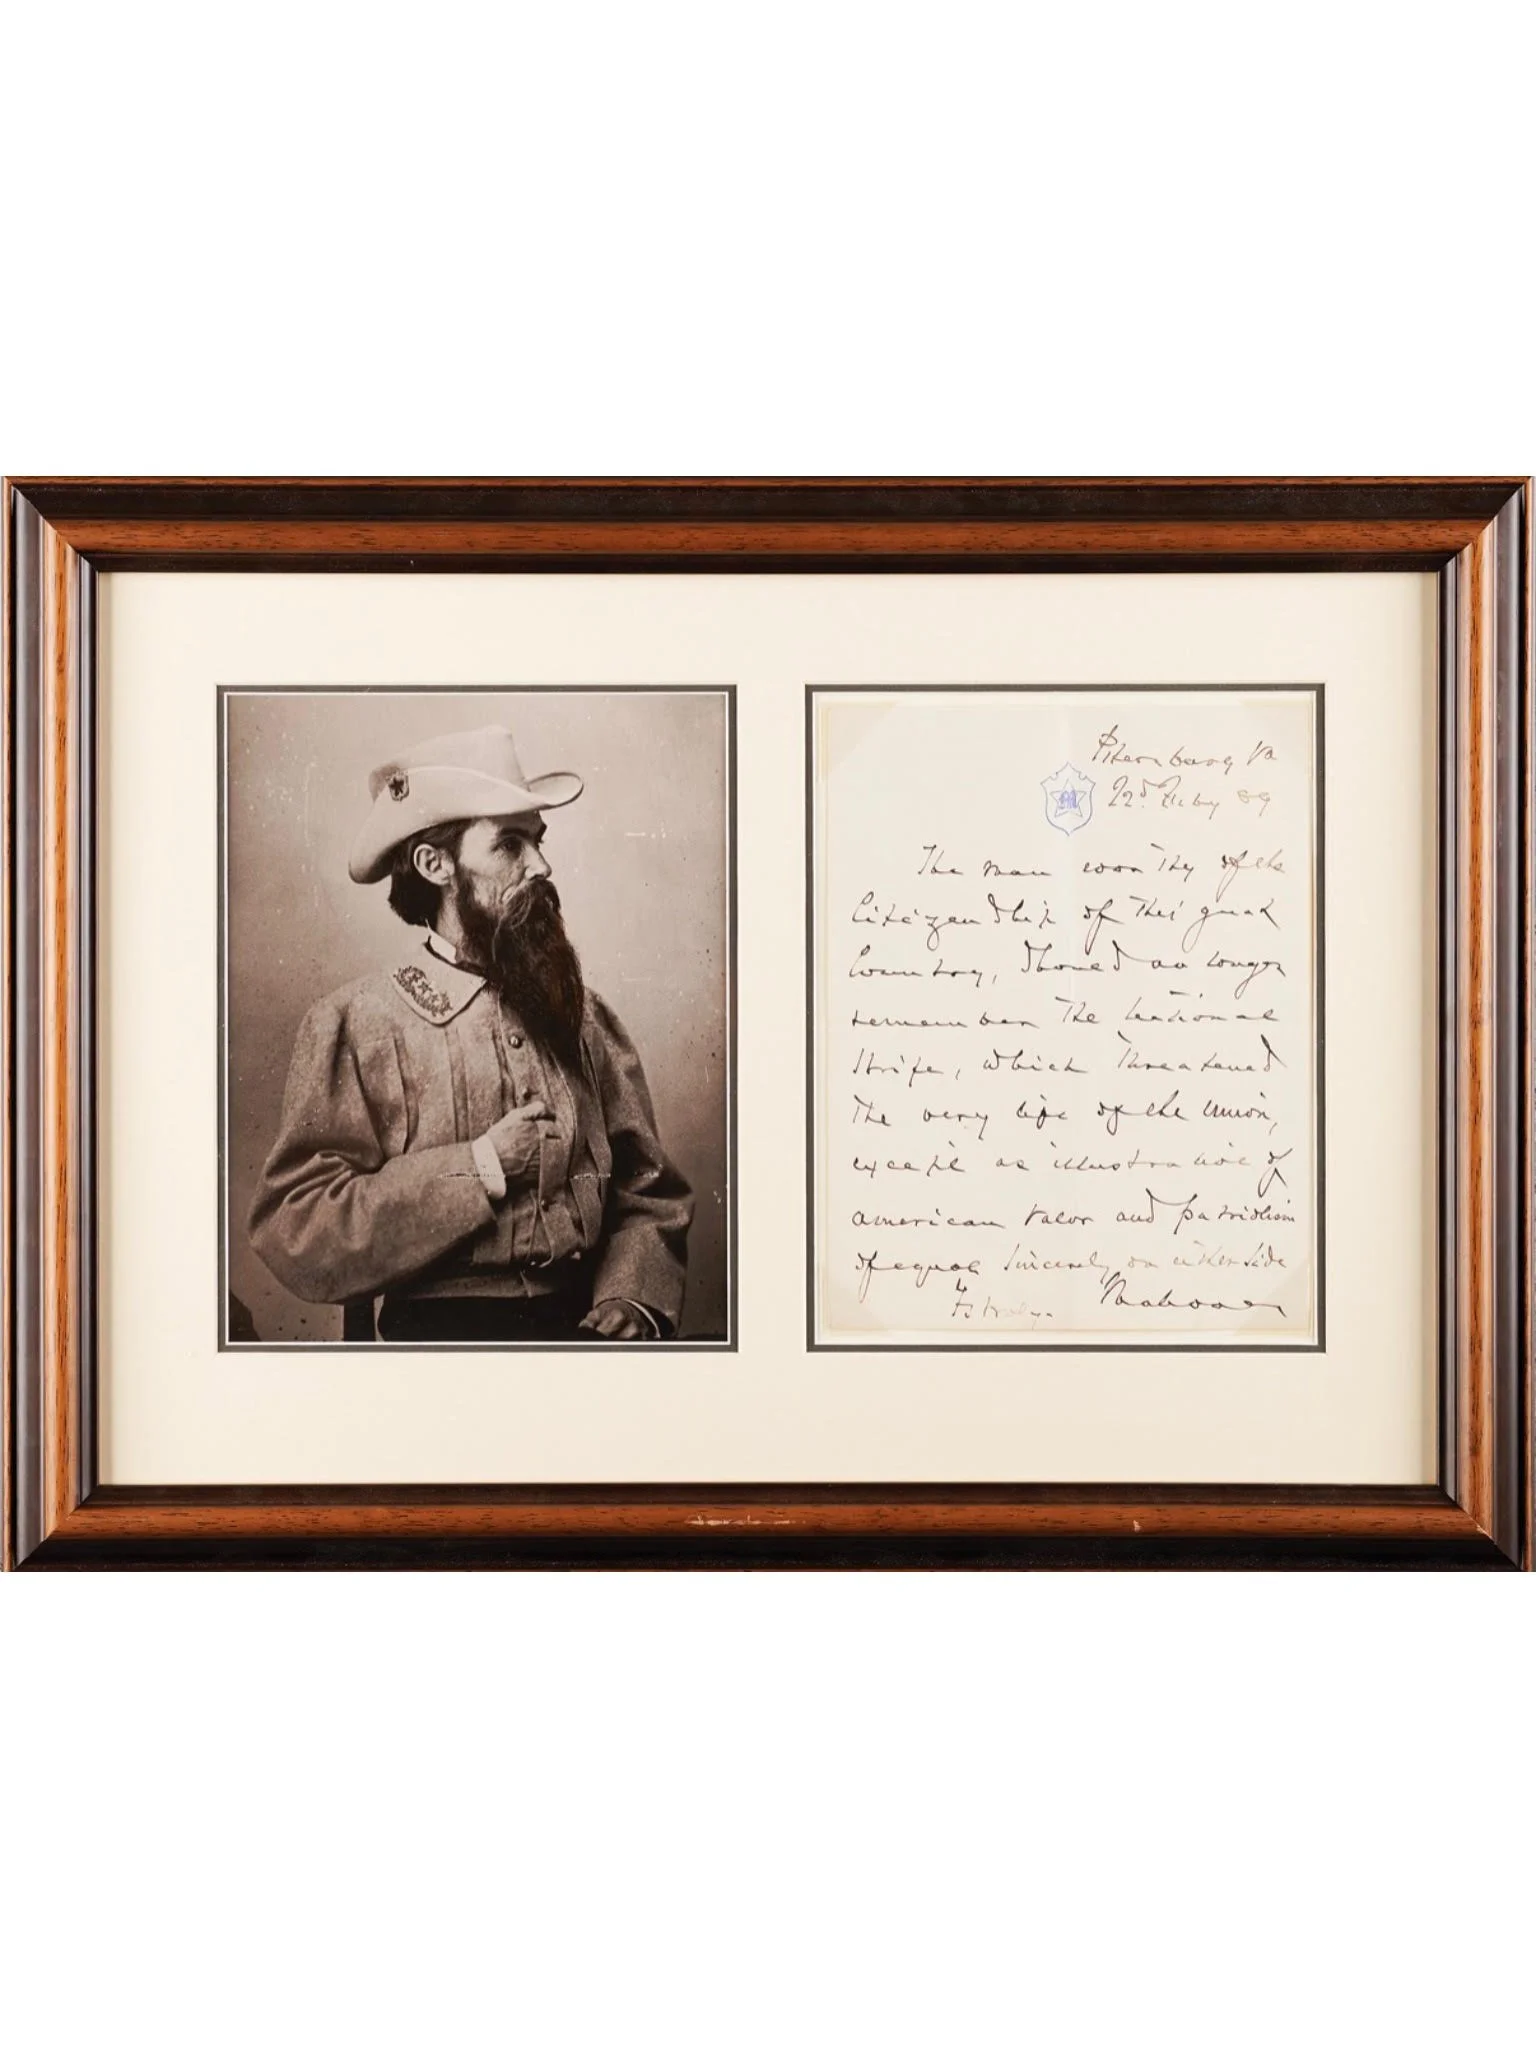 Petersburg Va
M
22d. Feby 89
The man worthy of the
Citizenship of this great
Country, should no longer
remember the sectional
Strife, which threatened
the very life of the Union,
except as illustrative of
American Valor and patriotism
of equal Sincerity on either side
Mahone